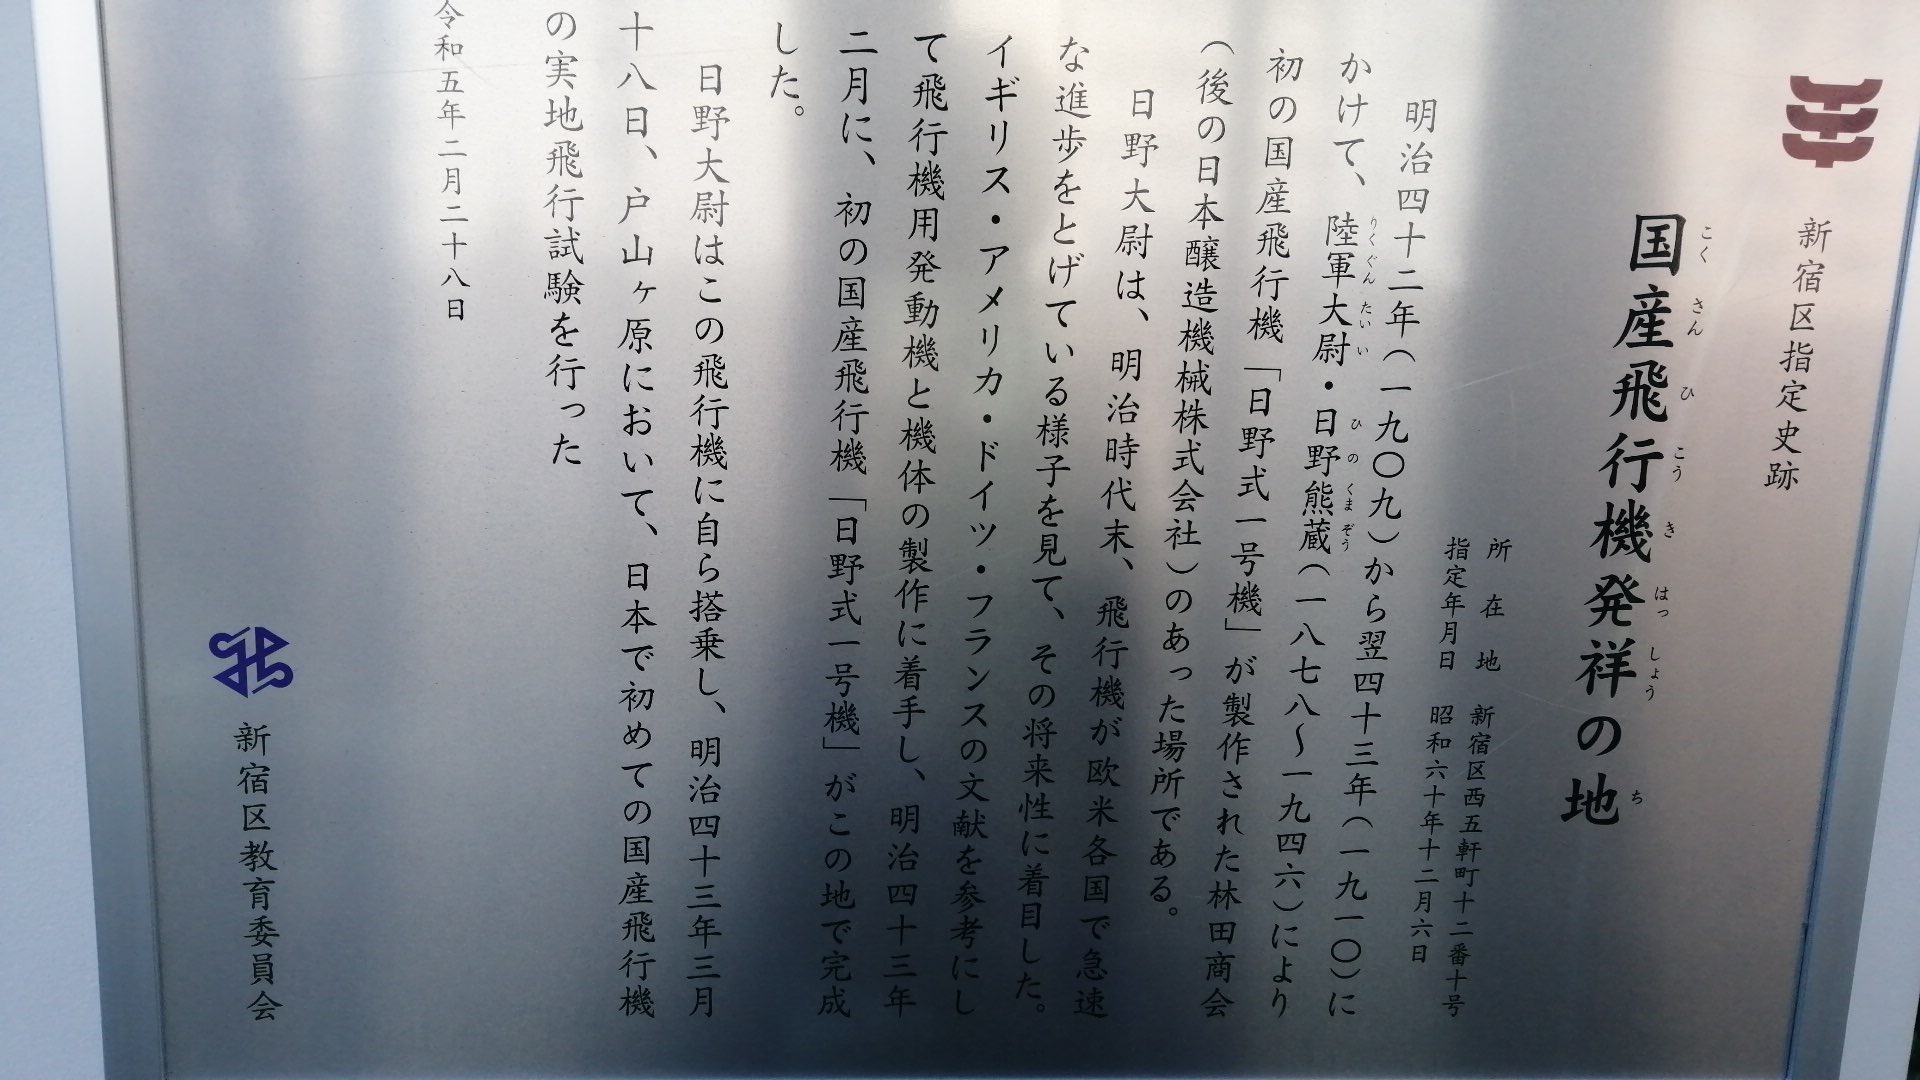 新宿区指定史跡
国産飛行機発祥の地
こくさんひこうきはっしょうち
所在地 新宿区西五軒町十二番十号
指定年月日 昭和六十年十二月六日
明治四十二年(一九〇九)から翌四十三年(一九一〇)に
かけて、陸軍大尉・日野熊蔵(一八七八〜一九四六)により
りくぐんたいい ひのくまぞう
初の国産飛行機「日野式一号機」が製作された林田商会
(後の日本醸造機械株式会社)のあった場所である。
日野大尉は、明治時代末、飛行機が欧米各国で急速
な進歩をとげている様子を見て、その将来性に着目した。
イギリス・アメリカ・ドイツ・フランスの文献を参考にし
て飛行機用発動機と機体の製作に着手し、明治四十三年
二月に、初の国産飛行機「日野式一号機」がこの地で完成
した。
日野大尉はこの飛行機に自ら搭乗し、明治四十三年三月
十八日、戸山ヶ原において、日本で初めての国産飛行機
の実地飛行試験を行った
令和五年二月二十八日
新宿区教育委員会